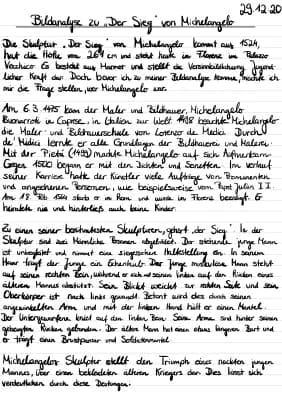 29.12.20
Bildanalyse zu „Der Sieg" von Michelangelo
Die Skulptur „Der Sieg" von Michelangelo kommt aus 1524,
hat die Höhe von 2,61 m und steht heute in Florenz im Palazzo
Vecchio. Er besteht aus Marmor und stellt die Versinnbildlichung jugend-
licher Kraft dar. Doch bevor ich zu meiner Bildanalyse komme, möchte ich
mir die Frage stellen, wer Michelangelo war.
Am 6.3.1475 kam der Maler und Bildhauer, Michelangelo
Buonarroti in Caprese, in Italien zur Welt. 1488 besuchte Michelangelo
die Maler- und Bildhauerschule von Lorenzo de Medici. Durch
de' Medici lernte er alle Grundlagen der Bildhauerei und Malerei.
Mit der Pietà (1498) machte Michelangelo auf sich Aufmerksam.
Gegen 1500 begann er mit den Dichten und Sonetten. Im Verlauf
seiner Karriere hatte der Künstler viele Aufträge von Prominenten
und angesehenen Personen, wie beispielsweise vom Papst Julius II.
Am 18. Feb. 1564 starb er in Rom und wurde in Florenz beerdigt. Er
heiratete nie und hinterließ auch keine Kinder.
Zu einen seiner bekanntesten Skulpturen, gehört „der Sieg". In der
Skulptur sind zwei Männliche Personen abgebildet. Der stehende junge Mann
ist unbekleidet und nimmt eine siegreichen Haltestellung ein. In seinem
Haar trägt der Junge ein Eichenlaub. Der junge, muskulöse Mann steht
auf seinen rechten Bein, während er sich mit seinen linken auf den Rücken eines
älteren Mannes abstützt. Sein Blick weicht zur rechten Seite und sein
Oberkörper ist nach links gewandt. Betont wird dies durch seinen
angewinkelten Arm und mit der linken Hand hält er einen Mantel.
Der Untergeworfene kniet auf dem linken Bein. Seine Arme sind hinter seinen
gebeugten Rücken gebunden. Der ältere Mann hat einen etwas längeren Bart und
er trägt einen Brustpanzer und Soldatenmantel.
Michelangelos Skulptur stellt den Triumph eines nackten jungen
Mannes, über einen bekleideten älteren Kriegers dar. Dies lässt sich
verdeutlichen durch diese Deutungen.